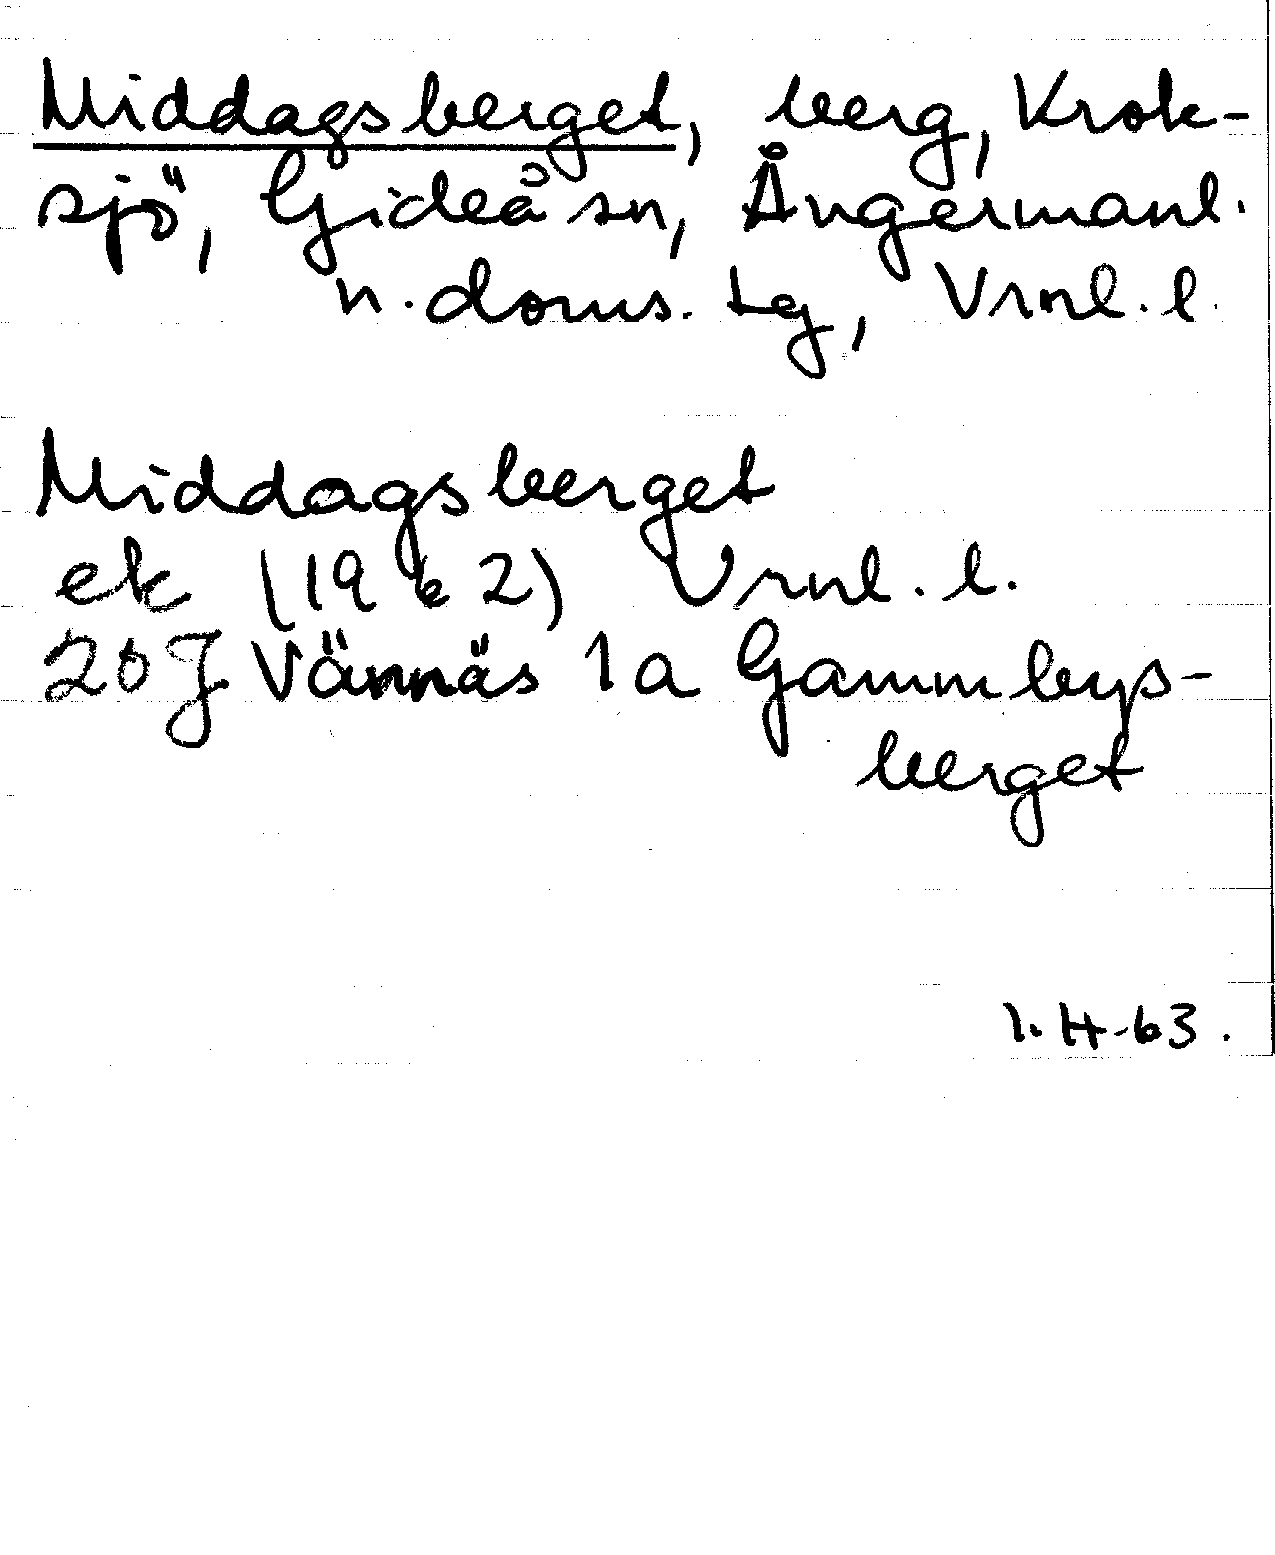 Middagsberget, berg, Krok-
sjö, Gideå sn, Ångermanl.
n. doms. tg, Vrnl. l.
Middagsberget
ek (1962) Vrnl. l.
20J Vännäs 1a Gammbys-
berget
I. H-63.